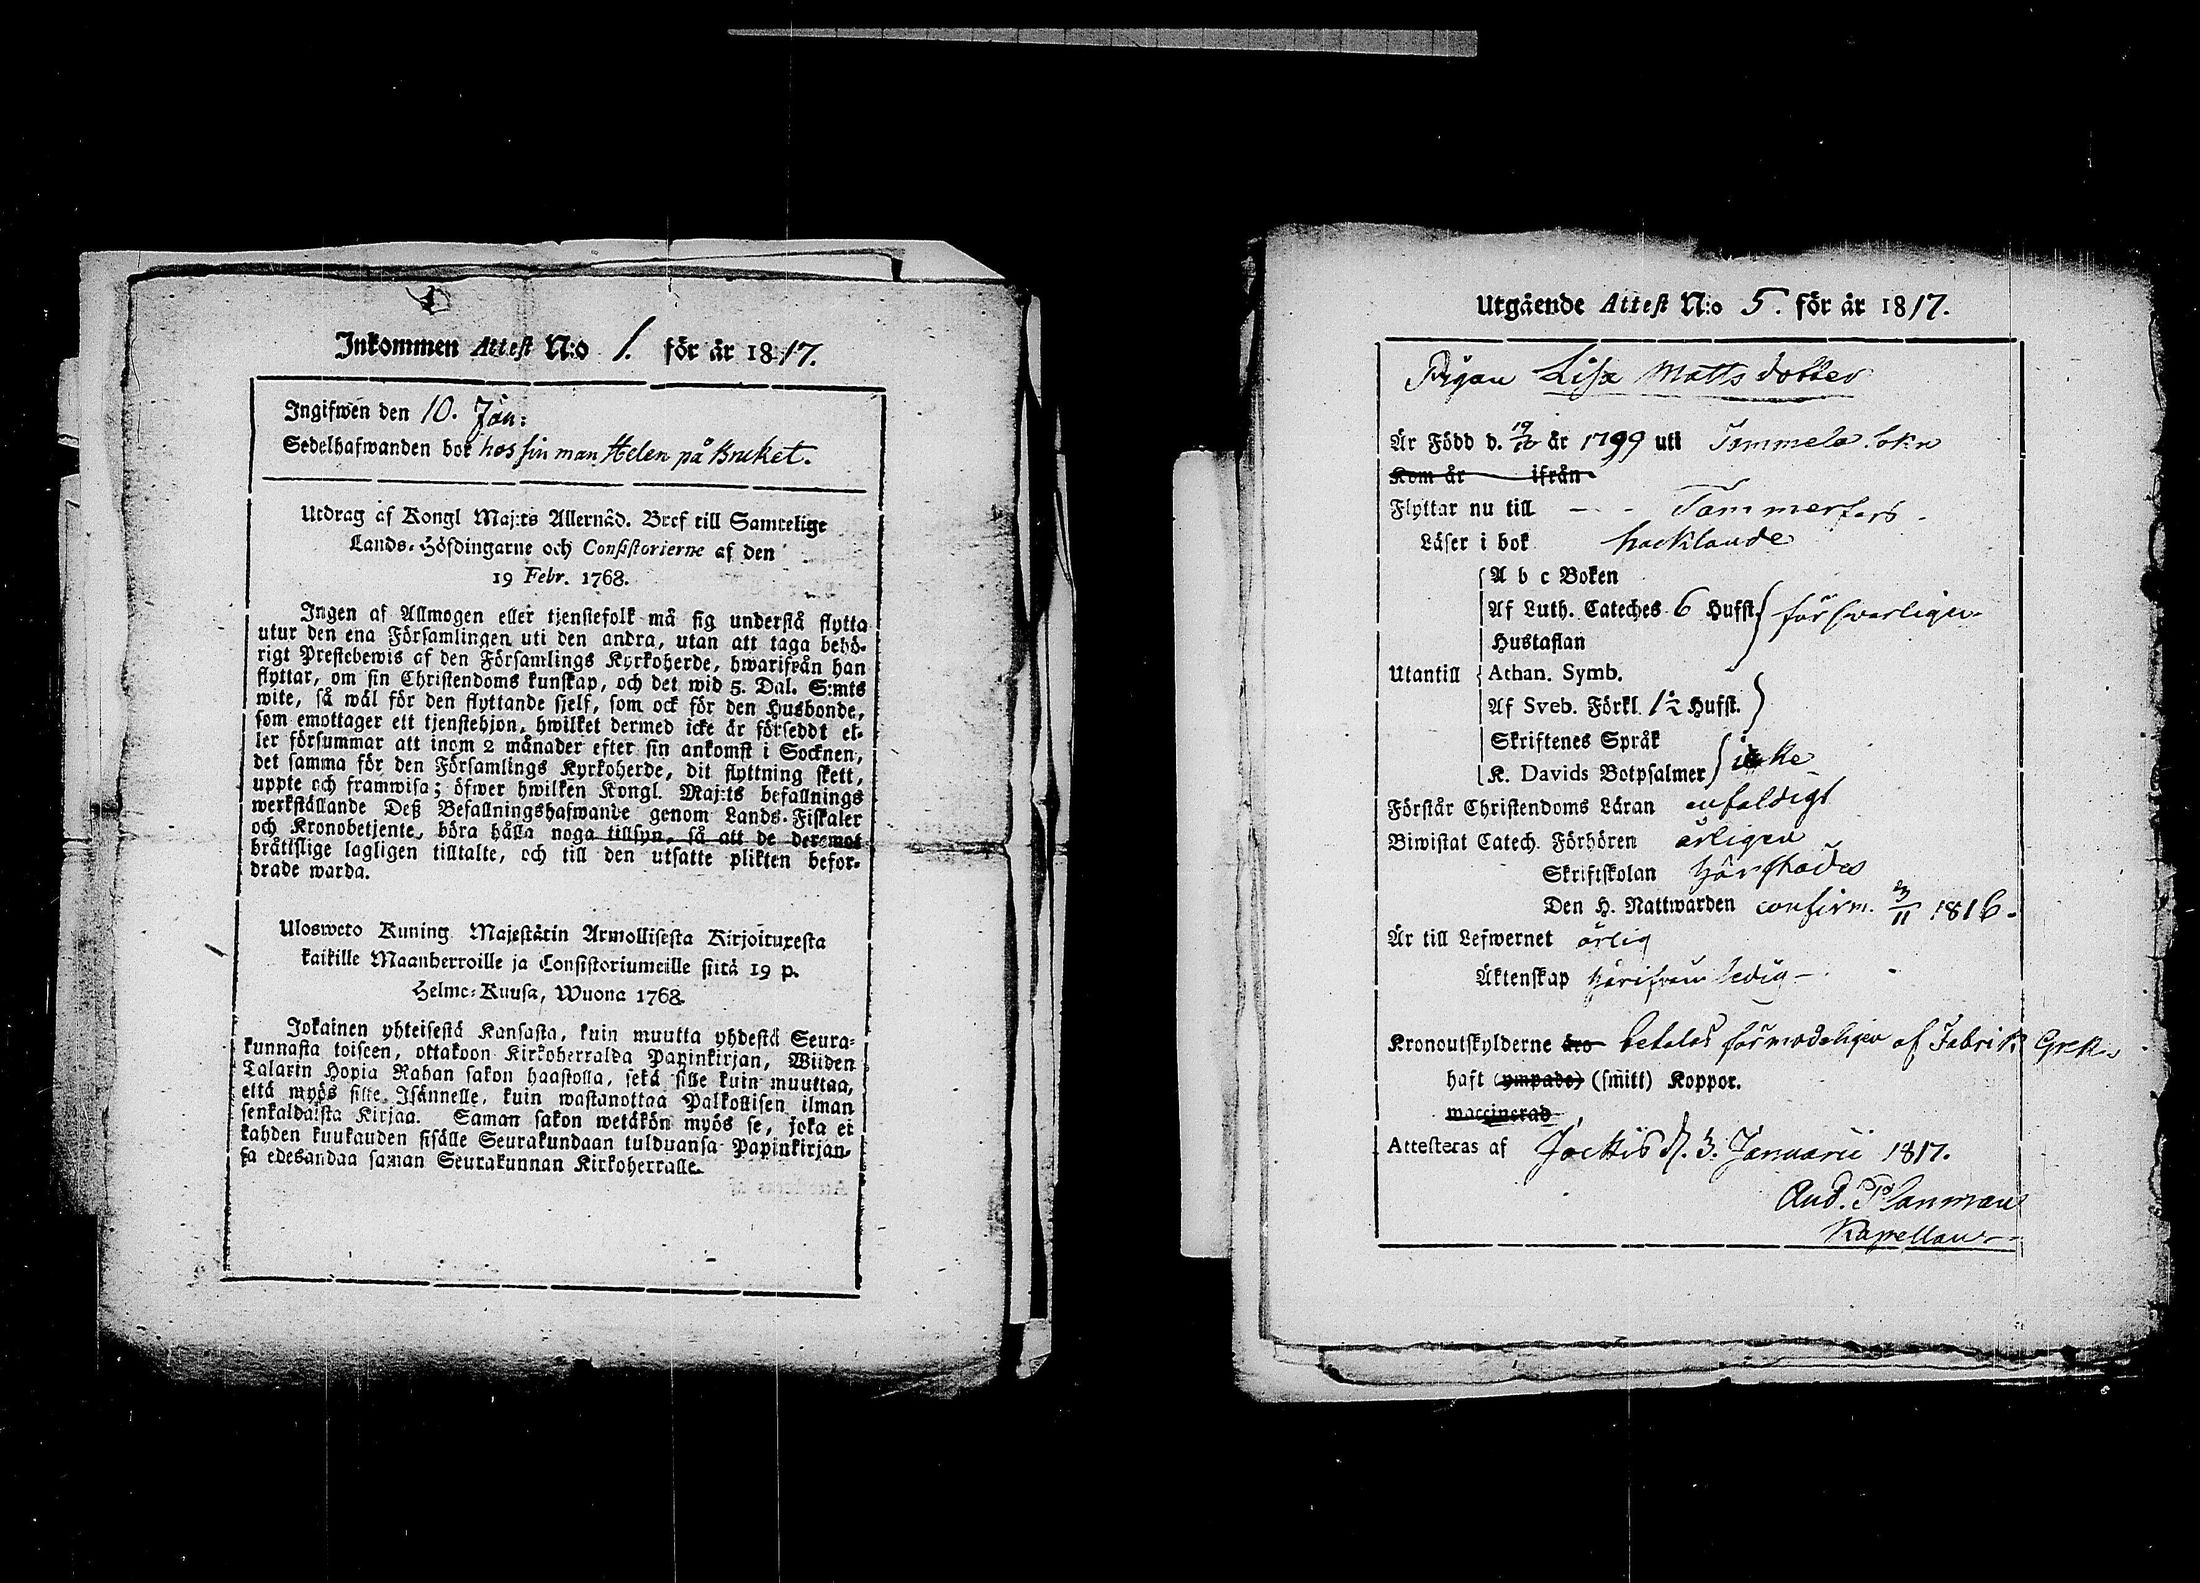 Inkommen Attest N:o 1. för år 1817.
Ingifwen den 10. Jan:
Sedelhafwanden bor hos sin man Helen på Bruket.
Utdrag af Kongl Maj:ts Allernåd. Bref till Samtelige
Lands-Höfdingarne och Consistorierne af den
19 Febr. 1768.
Ingen af Allmogen eller tjenstefolk må sig understå flytta
utur den ena Församlingen uti den andra, utan att taga behö-
rigt Prestebewis af den Församlings Kyrkoherde, hwarifrån han
flyttar, om sin Christendoms kunskap, och det wid 5. Dal. S:mts
wite, så wäl för den flyttande sjelf, som ock för den Husbonde,
som emottager ett tjenstehjon, hwilket dermed icke är försedt el-
ler försummar att inom 2 månader efter sin ankomst i Socknen,
det samma för den Församlings Kyrkoherde, dit flyttning skett,
uppte och framwisa; öfwer hwilken Kongl. Maj:ts befallnings
werkställande Deß Befallningshafwande genom Lands-Fiskaler
och Kronobetjente, böra hålla noga tillsyn, så att de deremot
bråtislige lagligen tilltalte, och till den utsatte plikten befor-
drade warda.
Ulosweto Kuning. Majestätin Armollisesta Kirjoituxesta
kaikille Maanherroille ja Consistoriumeille siitä 19 p.
Helme-Kuusa, Wuona 1768.
Jokainen yhteisestä Kansasta, kuin muutta yhdestä Seura-
kunnasta toiseen, ottakoon Kirkoherralda Papinkirjan, Wiiden
Talarin Hopia Rahan sakon haastolla, sekä sille kuin muuttaa,
että myös sille Isännelle, kuin wastanottaa Palkollisen ilman
senkaldaista Kirjaa. Saman sakon wetäkön myös se, joka ei
kahden kuukauden sisälle Seurakundaan tulduansa Papinkirjan-
sa edesandaa saman Seurakunnan Kirkoherralle.
Utgående Attest N:o 5. för år 1817.
Pigan Lisa Matts dotter
Är Född d. 19/10 år 1799 uti Tammela Sokn
Kom år ifrån
Flyttar nu till - - Tammerfors.
Läser i bok hacklande
A b c Boken
Af Luth. Cateches 6 Hufst. försvarligen
Hustaflan
Utantill Athan. Symb.
Af Sveb. Förkl. 1 1/2 Hufst.
Skriftenes Språk
K. Davids Botpsalmer icke
Förstår Christendoms Läran enfaldigt
Biwistat Catech. Förhören årligen
Skriftskolan härstädes
Den H. Nattwarden confirm. 23/11 1816.
Är till Lefwernet ärlig
Äktenskap härifrån ledig -
Kronoutskylderne äro betalas förmodeligen af Fabrik
haft (ympade) (smitt) Koppor.
waccinerad
Attesteras af Jockis d. 3. Januarii 1817.
And. Planman
Kapellan